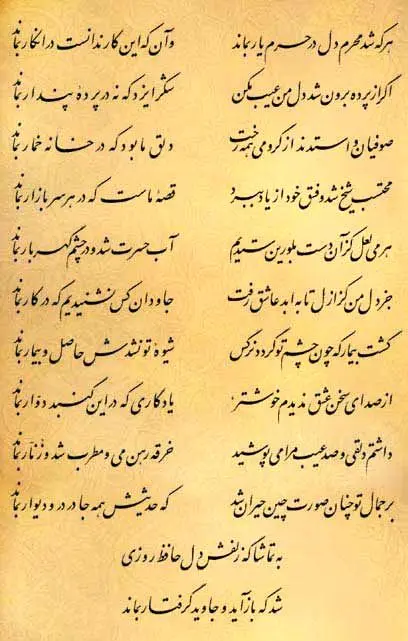 هر که شد محرم دل در حرم یار بماند وآن که این کار ندانست در انکار بماند
اگر از پرده برون شد دل من عیب مکن شکر ایزد که نه در پردهٔ پندار بماند
صوفیان واستدند از گرو می همه رخت دلق ما بود که در خانهٔ خمار بماند
محتسب شیخ شد و فسق خود از یاد ببرد قصهٔ ماست که در هر سر بازار بماند
هر می لعل کز آن دست بلورین ستدیم آب حسرت شد و در چشم گهربار بماند
جز دل من کز ازل تا به ابد عاشق رفت جاودان کس نشنیدیم که در کار بماند
گشت بیمار که چون چشم تو گردد نرگس شیوهٔ تو نشدش حاصل و بیمار بماند
از صدای سخن عشق ندیدم خوشتر یادگاری که در این گنبد دوّار بماند
داشتم دلقی و صد عیب مرا می پوشید خرقه رهن می و مطرب شد و زنّار بماند
بر جمال تو چنان صورت چین حیران شد که حدیثش همه جا در در و دیوار بماند
به تماشاگه زلفش دل حافظ روزی
شد که بازآید و جاوید گرفتار بماند